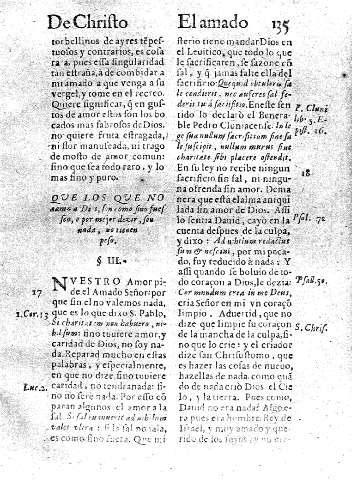 De Christo
torbellinos de ayres tēpes-
tuosos y contrarios, es cosa
rara. pues essa singularidad
tan estraña, a de combidar a
mi amado a que venga a su
vergel, y tome en el recreo.
Quiere significar, q̄ en gus-
tos de amor estos son los bo-
cados mas sabrosos de Dios.
no quiere fruta estragada,
ni flor manuseada, ui trago
de mosto de amor comun:
sino que sea todo raro, y lo
mas fino y puro.
QVE LOS QVE NO
no tienen
peso.
§ III.
17
NVESTRO Amor pi-
de el Amado Señor: por
que sin el no valemos nada,
1.Cor.13
que es lo que dixo S. Pablo,
Si charitatem non habuero, ni-
hil sum: sino tuuiere amor y
caridad de Dios, no soy na-
da. Reparad mucho en estas
palabras, y especialmente,
en que no dize sino tuuiere
Luc.2.
caridad, no tendra nada: si-
no no sere nada. Por esso cō
paran algunos el amor a la
sal. Si sal euanuerit ad nihilum
valet vltra: si la sal no sala,
es como sino fuera. Que mi
El amado 135
sterio tiene mandar Dios en
el Leuitico, que todo lo que
le sacrificaren, se sazone cō
sal, y q̄ jamas falte ella del
sacrificio: Quicquid obtuleris sa
le condieris, nec auferes sal fe-
deris tui à sacrificio. En este sen
P. Cluni
tido lo declarò el Benera-
lib. 3. E-
ble Pedro Cluniacense. In le
pist. 16.
ge sua nullum sacrificium sine sa
le suscipit, nullum munus sine
charitate sibi placere ostendit.
18
En su ley no recibe ningun
sacrificio sin sal, ni ningu-
na ofrenda sin amor. De ma
nera que està el alma aniqui
lada sin amor de Dios. Assi
Psal. 72
lo sentia Dauid, cayò en la
cuenta despues de la culpa,
y dixo: Ad nihilum redactus
sum & nesciui, por mi peca-
do, fuy reducido à nada: Y
assi quando se boluio de to-
Psal.50.
do coraçon a Dios, le dezia:
Cor mundum crea in me Deus,
cria Señor en mi vn coraçō
limpio. Aduertid, que no
S. Chris.
dize que limpie su coraçon
de la mancha de la culpa, si-
no que lo crie: y el criador
dize san Chrisostomo, que
es hazer las cosas de nueuo,
hazellas de nada como crio
de nada criò Dios el Cie
lo, y la tierra. Pues como,
Dauid no era nada? Afgoe-
ra pues era hombre, Rey de
Israel, y muy amado y que-
rido de los suyos,